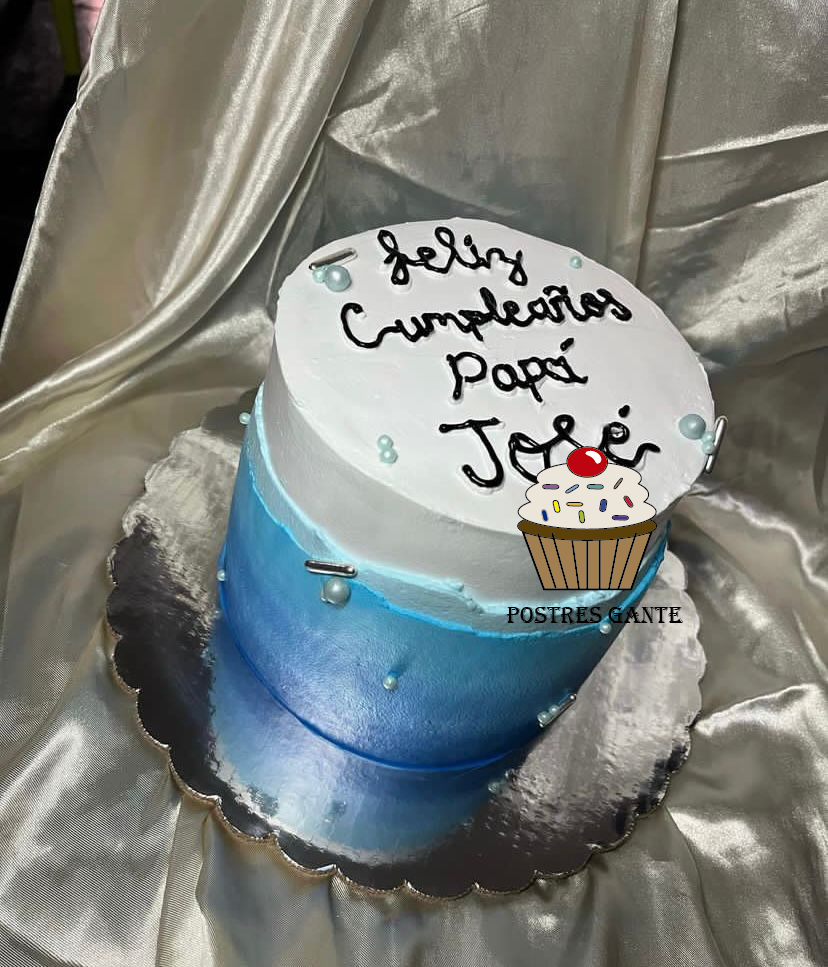 feliz
Cumpleaños
Papá
José
POSTRES GANTE